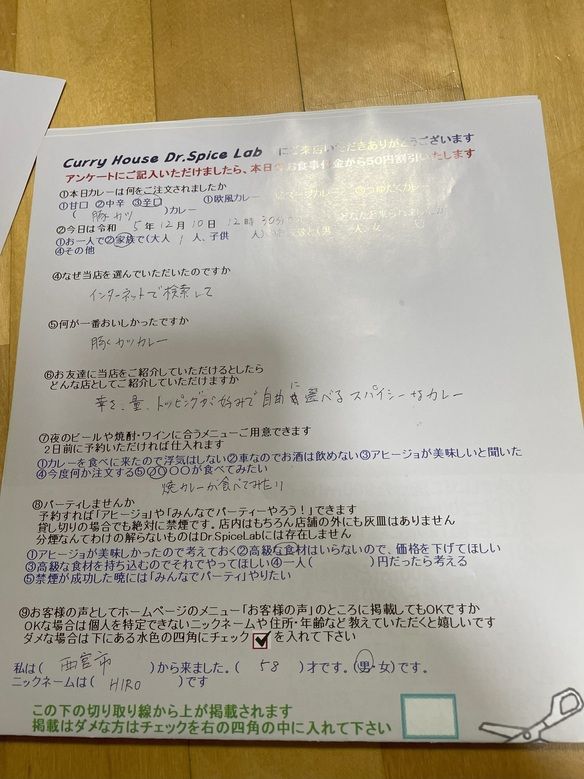 Curry House Dr.Spice Lab にご来店いただきありがとうございます
アンケートにご記入いただけましたら、本日のお食事代金から50円割引いたします
①本日カレーは何をご注文されましたか
①甘口 ②中辛 ③辛口 ①欧風カレー
( 豚カツ )カレー
②今日は令和 5年 12月 10日 12時 30分
①お一人で②家族で(大人 1 人、子供 人)
④その他
④なぜ当店を選んでいただいたのですか
インターネットで検索して
⑤何が一番おいしかったですか
豚カツカレー
⑥お友達に当店をご紹介していただけるとしたら
どんな店としてご紹介していただけますか
辛さ、量、トッピングが好みで自由に選べるスパイシーなカレー
⑦夜のビールや焼酎・ワインに合うメニューご用意できます
2日前に予約いただければ仕入れます
①カレーを食べに来たので浮気はしない②車なのでお酒は飲めない③アヒージョが美味しいと聞いた
④今度何か注文する⑤〇〇〇〇が食べてみたい
焼カレーが食べてみたい
⑧パーティしませんか
予約すれば「アヒージョ」や「みんなでパーティーやろう!」できます
貸し切りの場合でも絶対に禁煙です。店内はもちろん店舗の外にも灰皿はありません
分煙なんてわけの解らないものはDr.SpiceLabには存在しません
①アヒージョが美味しかったので考えておく②高級な食材はいらないので、価格を下げてほしい
③高級な食材を持ち込むのでそれでやってほしい④一人( )円だったら考える
⑤禁煙が成功した暁には「みんなでパーティ」やりたい
⑨お客様の声としてホームページのメニュー「お客様の声」のところに掲載してもOKですか
OKな場合は個人を特定できないニックネームや住所・年齢など教えていただくと嬉しいです
ダメな場合は下にある水色の四角にチェック を入れて下さい
私は( 西宮市 )から来ました。( 58 )才です。(男・女)です。
ニックネームは( HIRO )です
この下の切り取り線から上が掲載されます
掲載はダメな方はチェックを右の四角の中に入れて下さい